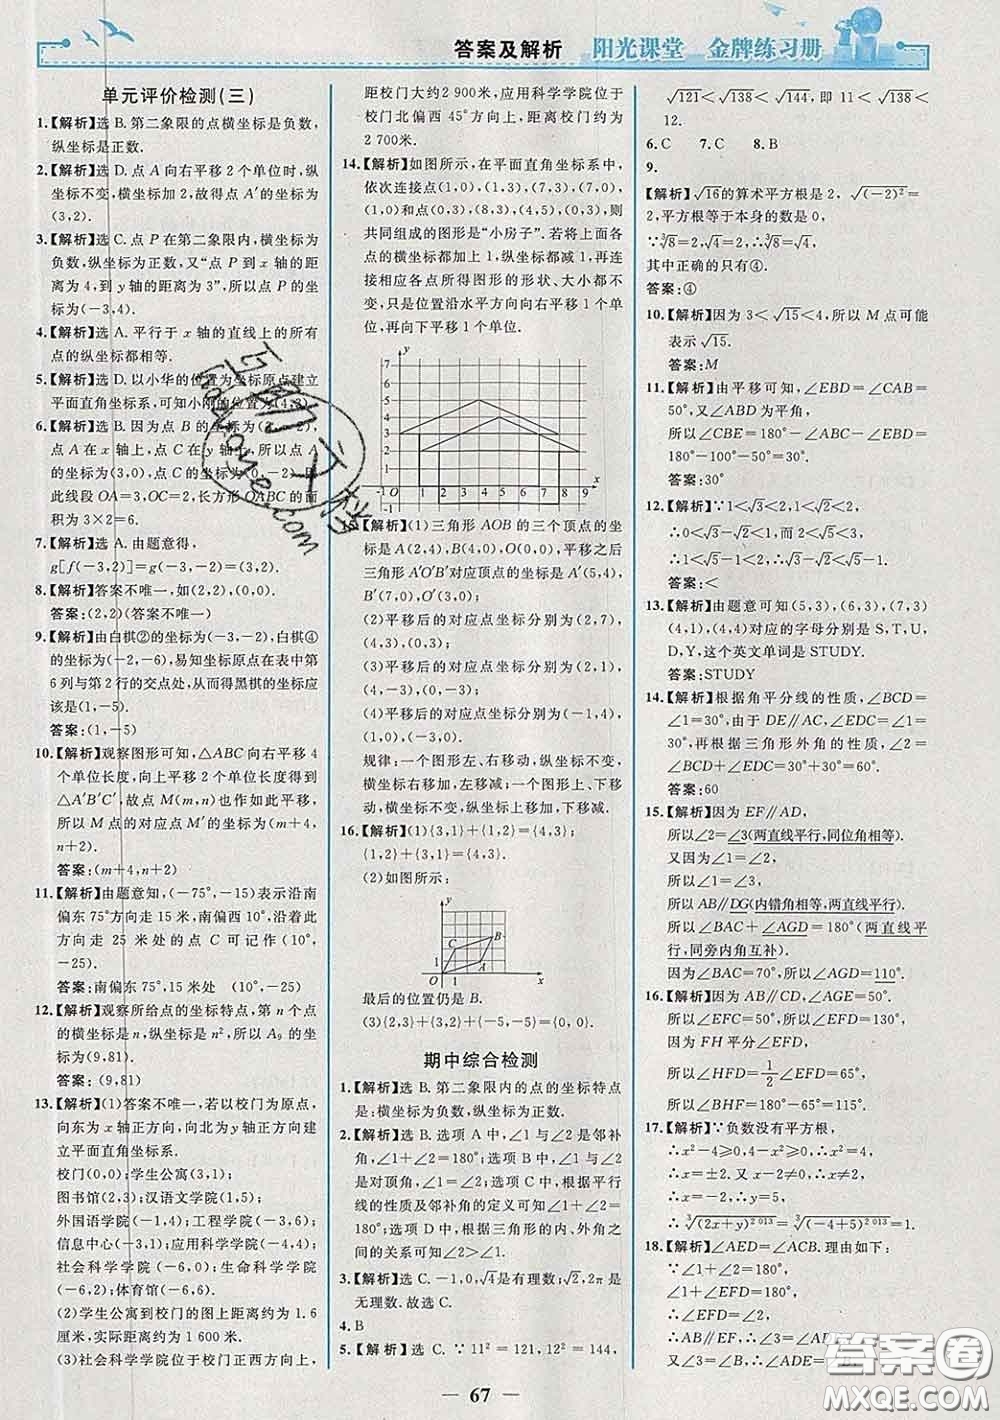 答案及解析 阳光课堂 金牌练习册
单元评价检测(三)
1.【解析】选 B.第二象限的点横坐标是负数,
纵坐标是正数.
2.【解析】选 D.点 A 向右平移 2 个单位时,纵
坐标不变,横坐标加 2,故得点 A′的坐标为
(3,2).
3.【解析】选 C.点 P 在第二象限内,横坐标为
负数,纵坐标为正数,又“点 P 到 x 轴的距
离为 4,到 y 轴的距离为 3”,所以点 P 的坐
标为(-3,4).
4.【解析】选 A.平行于 x 轴的直线上的所有
点的纵坐标都相等.
5.【解析】选 D.以小华的位置为坐标原点建立
平面直角坐标系,可知小刚的位置为(4,3).
6.【解析】选 B.因为点 B 的坐标为(3,-2),
点 A 在 x 轴上,点 C 在 y 轴上,所以点 A
的坐标为(3,0),点 C 的坐标为(0,-2).因
此线段 OA=3,OC=2,长方形 OABC 的面
积为 3×2=6.
7.【解析】选 A.由题意得,
g[f(-3,2)]=g(-3,-2)=(3,2).
8.【解析】答案不唯一,如(2,2),(0,0).
答案:(2,2)(答案不唯一)
9.【解析】由白棋②的坐标为(-3,-2),白棋④
的坐标为(-2,-6),易知坐标原点在表中第
6 列与第 2 行的交点处,从而得黑棋的坐标应
该是(1,-5).
答案:(1,-5)
10.【解析】观察图形可知,△ABC 向右平移 4
个单位长度,向上平移 2 个单位长度得到
△A′B′C′,故点 M(m,n)也如此平移,
所以 M 点的对应点 M′的坐标为(m+4,
n+2).
答案:(m+4,n+2)
11.【解析】由题意知,(-75°,-15)表示沿南
偏东 75°方向走 15 米,南偏西 10°,沿着此
方向走 25 米处的点 C 可记作(10°,
-25).
答案:南偏东 75°,15 米处 (10°,-25)
12.【解析】观察所给点的坐标特点,第 n 个点
的横坐标是 n,纵坐标是 n²,所以 A₉ 的坐
标为(9,81).
答案:(9,81)
13.【解析】(1)答案不唯一,若以校门为原点,
向东为 x 轴正方向,向北为 y 轴正方向建
立平面直角坐标系.
校门(0,0);学生公寓(3,1);
图书馆(2,3);汉语文学院(1,4);
外国语学院(-1,4);工程学院(-3,6);
信息中心(-3,1);应用科学学院(-4,4);
社会科学学院(-6,0);生命科学学院
(-6,2);体育馆(-6,6).
(2)学生公寓到校门的图上距离约为 1.6
厘米,实际距离约为 1 600 米.
(3)社会科学学院位于校门正西方向上,
距校门大约 2 900 米,应用科学学院位于
校门北偏西 45°方向上,距离校门约为
2 700米.
14.【解析】如图所示,在平面直角坐标系中,
依次连接点(1,0),(1,3),(7,3),(7,0),
(1,0)和点(0,3),(8,3),(4,5),(0,3),则
共同组成的图形是“小房子”.若将上面各
点的横坐标都加上 1,纵坐标都减 1,所得
图形与各点所得图形的形状、大小都不
变,只是位置沿水平方向向右平移 1 个单
位,再向下平移 1 个单位.
y
7
6
5
4
3
2
1
-1 O 1 2 3 4 5 6 7 8 9 x
-1
15.【解析】(1)三角形 AOB 的三个顶点的坐
标是 A(2,4),B(4,0),O(0,0),平移之后
三角形 A′O′B′对应顶点的坐标是 A′(5,4),
B′(7,0),O′(3,0).
(2)平移后的对应点坐标分别为(2,7),
(4,3),(0,3).
(3)平移后的对应点坐标分别为(2,1),
(4,-3),(0,-3).
(4)平移后的对应点坐标分别为(-1,4),
(1,0),(-3,0).
规律:一个图形左、右移动,纵坐标不变,
横坐标右移加,左移减;一个图形上、下移
动,横坐标不变,纵坐标上移加,下移减.
16.【解析】(1){3,1}+{1,2}={4,3};
{1,2}+{3,1}={4,3}.
(2)如图所示:
y
C B
1 A
O 1 x
最后的位置仍是 B.
(3){2,3}+{3,2}+{-5,-5}={0, 0}.
期中综合检测
1.【解析】选 B.第二象限内的点的坐标特点
是:横坐标为负数,纵坐标为正数.
2.【解析】选 B.选项 A 中,∠1 与∠2 是邻补
角,∠1+∠2=180°;选项 B 中,∠1 与∠2
是对顶角,∠1=∠2;选项 C 中,根据平行
线的性质及邻补角的定义可知∠1+∠2=
180°;选项 D 中,根据三角形的内、外角之
间的关系可知∠2>∠1.
3.【解析】选 C.-1,0,√4是有理数;√2,2π是
无理数.故选 C.
4.B
5.【解析】选 C.∵11²=121,12²=144,
√121<√138<√144,即 11<√138<
12.
6.C 7.C 8.B
9.
【解析】√16的算术平方根是 2,√(-2)²=
2,平方根等于本身的数是 0,
∵∛8=2,√4=2,∴∛8=√4,
其中正确的只有④.
答案:④
10.【解析】因为 3<√15<4,所以 M 点可能
表示√15.
答案:M
11.【解析】由平移可知,∠EBD=∠CAB=
50°,又∠ABD 为平角,
所以∠CBE=180°-∠ABC-∠EBD=
180°-100°-50°=30°.
答案:30°
12.【解析】∵1<√3<2,1<√2<2,
∴0<√3-√2<1,而 2<√5<3,
∴1<√5-1<2,∴√3-√2<√5-1.
答案:<
13.【解析】由题意可知(5,3),(6,3),(7,3)
(4,1),(4,4)对应的字母分别是 S,T,U,
D,Y,这个英文单词是 STUDY.
答案:STUDY
14.【解析】根据角平分线的性质,∠BCD=
∠1=30°,由于 DE∥AC,∠BDC=∠1=
30°,再根据三角形外角的性质,∠2=
∠BDC+∠BCD=30°+30°=60°.
答案:60
15.【解析】因为 EF∥AD,
所以∠2=∠3(两直线平行,同位角相等).
又因为∠1=∠2,
所以∠1=∠3.
所以 AB∥DG(内错角相等,两直线平行).
所以∠BAC+∠AGD=180°(两直线平
行,同旁内角互补).
因为∠BAC=70°,所以∠AGD=110°.
16.【解析】因为 AB∥CD,∠AGE=50°.
所以∠EFC=50°,所以∠EFD=130°,
因为 FH 平分∠EFD.
所以∠HFD=1/2∠EFD=65°,
所以∠BHF=180°-65°=115°.
17.【解析】∵负数没有平方根,
∴x²-4≥0,4-x²≥0,∴x²=4,
∴x=±2.又∵x-2≠0,∴x≠2.
∴x=-2,∴y=5,
∴∛(2x+y)²⁰¹³=∛(-4+5)²⁰¹³=1.
18.【解析】∠AED=∠ACB.理由如下:
∵∠1+∠2=180°,
∠1+∠EFD=180°,
∴∠2=∠EFD.
∴AB∥EF,∴∠3=∠ADE.
又∵∠3=∠B,∴∠ADE=∠B,
67
答案圈
MXQE.COM